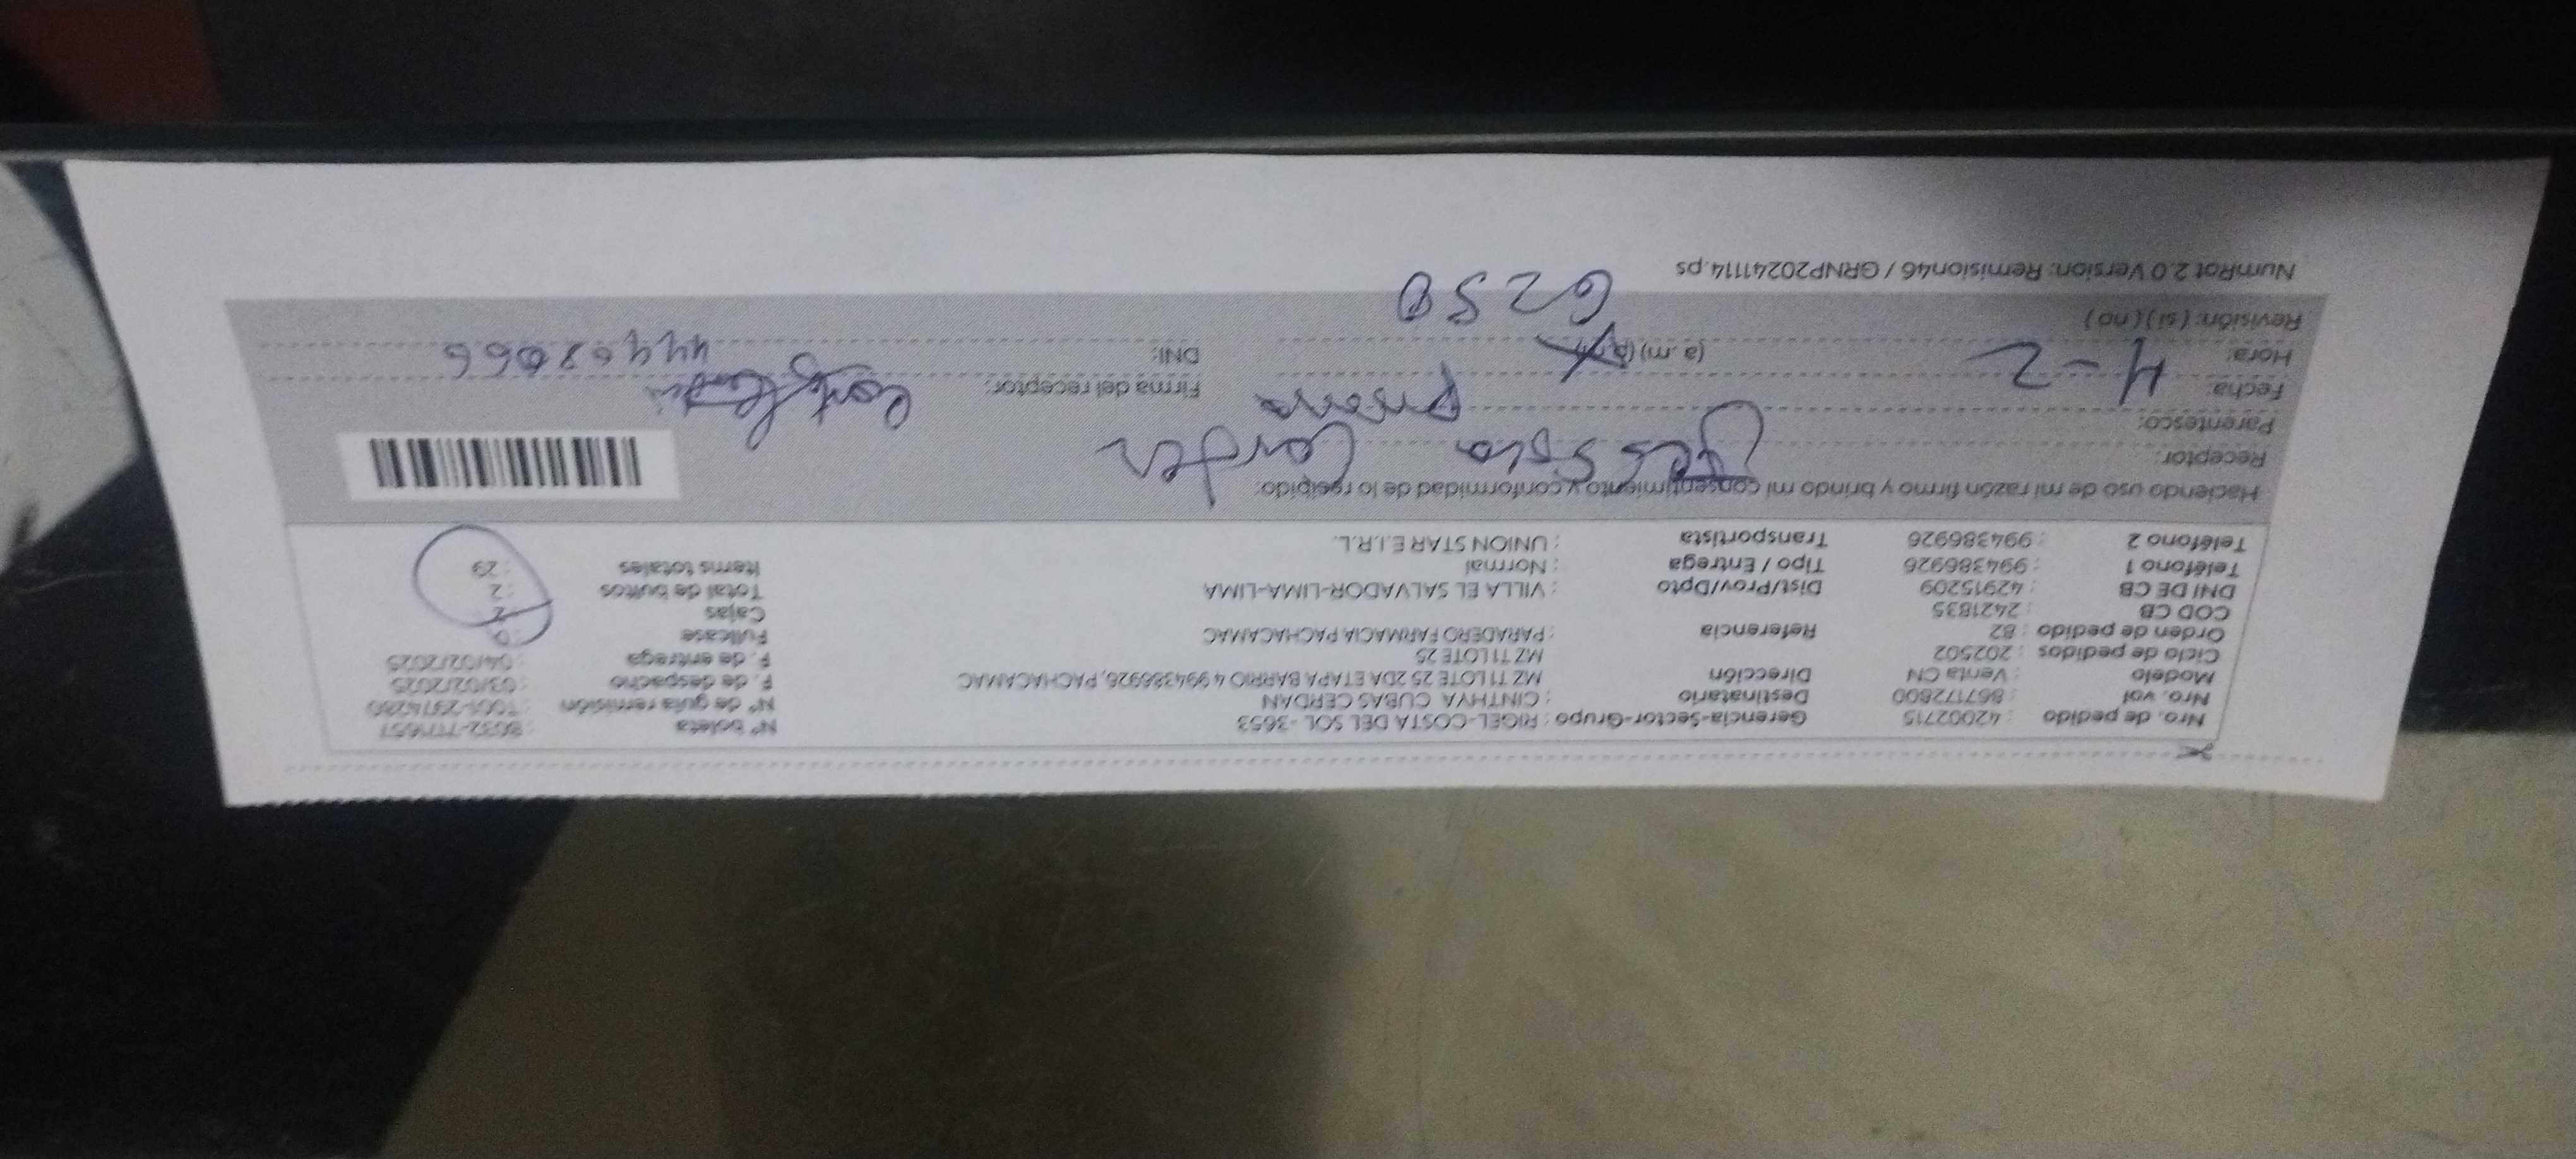 Nro. de pedido : 42002715 Gerencia-Sector-Grupo : RIGEL-COSTA DEL SOL -3653 N° boleta
Nro. vol : 867172800 Destinatario : CINTHYA CUBAS CERDAN N° de guía remisión : T001-2974280
Modelo : Venta CN Dirección MZ T1 LOTE 25 2DA ETAPA BARRIO 4 994386926, PACHACAMAC F. de despacho : 03/02/2025
Ciclo de pedidos : 202502 MZ T1 LOTE 25 F. de entrega : 04/02/2025
Orden de pedido : 82 Referencia : PARADERO FARMACIA PACHACAMAC Fullcase : 0
COD CB : 2421835 Cajas : 2
DNI DE CB : 42915209 Dist/Prov/Dpto : VILLA EL SALVADOR-LIMA-LIMA Total de bultos : 2
Teléfono 1 : 994386926 Tipo / Entrega : Normal Items totales : 29
Teléfono 2 : 994386926 Transportista : UNION STAR E.I.R.L.
Haciendo uso de mi razón firmo y brindo mi consentimiento y conformidad de lo recibido:
Receptor:
Parentesco:
Fecha: 4-2 Firma del receptor:
Hora: (a.m) (p.m) DNI:
Revisión: ( si ) ( no ) 6250
NumRot 2.0 Version: Remision46 / GRNP20241114.ps